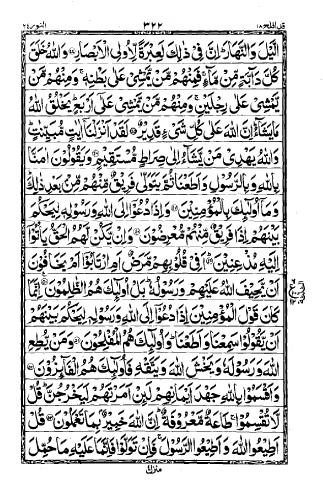 قد افلح ۱۸ ۳۲۲ النور ۲۴
الَّيْلَ وَالنَّهَارَ ؕ اِنَّ فِيْ ذٰلِكَ لَعِبْرَةً لِّاُولِي الْاَبْصَارِ ۞ وَاللّٰهُ خَلَقَ
كُلَّ دَآبَّةٍ مِّنْ مَّآءٍ ۚ فَمِنْهُمْ مَّنْ يَّمْشِيْ عَلٰى بَطْنِهٖ ۚ وَمِنْهُمْ مَّنْ
يَّمْشِيْ عَلٰى رِجْلَيْنِ ۚ وَمِنْهُمْ مَّنْ يَّمْشِيْ عَلٰٓى اَرْبَعٍ ؕ يَخْلُقُ اللّٰهُ
مَا يَشَآءُ ؕ اِنَّ اللّٰهَ عَلٰى كُلِّ شَيْءٍ قَدِيْرٌ ۞ لَقَدْ اَنْزَلْنَاۤ اٰيٰتٍ مُّبَيِّنٰتٍ ؕ
وَاللّٰهُ يَهْدِيْ مَنْ يَّشَآءُ اِلٰى صِرَاطٍ مُّسْتَقِيْمٍ ۞ وَيَقُوْلُوْنَ اٰمَنَّا
بِاللّٰهِ وَبِالرَّسُوْلِ وَاَطَعْنَا ثُمَّ يَتَوَلّٰى فَرِيْقٌ مِّنْهُمْ مِّنْۢ بَعْدِ ذٰلِكَ ؕ
وَمَاۤ اُولٰٓئِكَ بِالْمُؤْمِنِيْنَ ۞ وَاِذَا دُعُوْۤا اِلَى اللّٰهِ وَرَسُوْلِهٖ لِيَحْكُمَ
بَيْنَهُمْ اِذَا فَرِيْقٌ مِّنْهُمْ مُّعْرِضُوْنَ ۞ وَاِنْ يَّكُنْ لَّهُمُ الْحَقُّ يَاْتُوْۤا
اِلَيْهِ مُذْعِنِيْنَ ۞ اَفِيْ قُلُوْبِهِمْ مَّرَضٌ اَمِ ارْتَابُوْۤا اَمْ يَخَافُوْنَ
اَنْ يَّحِيْفَ اللّٰهُ عَلَيْهِمْ وَرَسُوْلُهٗ ؕ بَلْ اُولٰٓئِكَ هُمُ الظّٰلِمُوْنَ ۞ اِنَّمَا
كَانَ قَوْلَ الْمُؤْمِنِيْنَ اِذَا دُعُوْۤا اِلَى اللّٰهِ وَرَسُوْلِهٖ لِيَحْكُمَ بَيْنَهُمْ
اَنْ يَّقُوْلُوْا سَمِعْنَا وَاَطَعْنَا ؕ وَاُولٰٓئِكَ هُمُ الْمُفْلِحُوْنَ ۞ وَمَنْ يُّطِعِ
اللّٰهَ وَرَسُوْلَهٗ وَيَخْشَ اللّٰهَ وَيَتَّقْهِ فَاُولٰٓئِكَ هُمُ الْفَآئِزُوْنَ ۞
وَاَقْسَمُوْا بِاللّٰهِ جَهْدَ اَيْمَانِهِمْ لَئِنْ اَمَرْتَهُمْ لَيَخْرُجُنَّ ؕ قُلْ
لَّا تُقْسِمُوْا ۚ طَاعَةٌ مَّعْرُوْفَةٌ ؕ اِنَّ اللّٰهَ خَبِيْرٌۢ بِمَا تَعْمَلُوْنَ ۞ قُلْ
اَطِيْعُوا اللّٰهَ وَاَطِيْعُوا الرَّسُوْلَ ۚ فَاِنْ تَوَلَّوْا فَاِنَّمَا عَلَيْهِ مَا حُمِّلَ